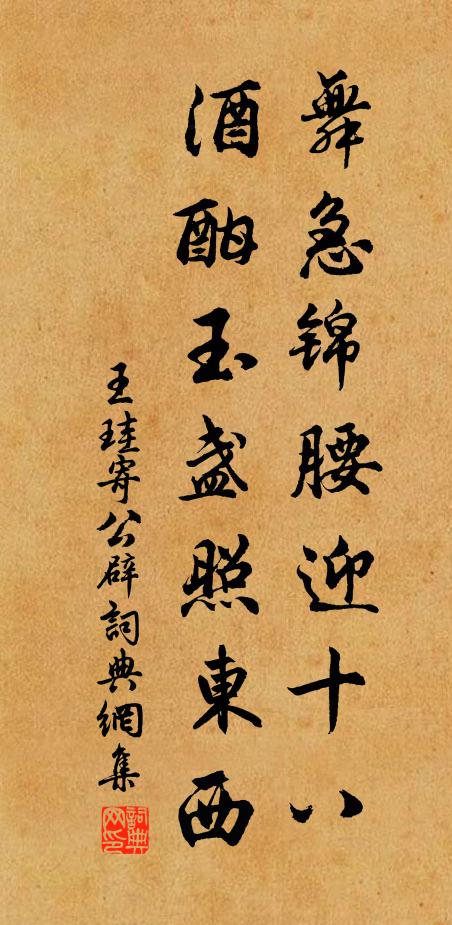 舞急锦腰迎十八
酒酣玉盏照東西
王珪寄公辟詞典網集
詞典网印